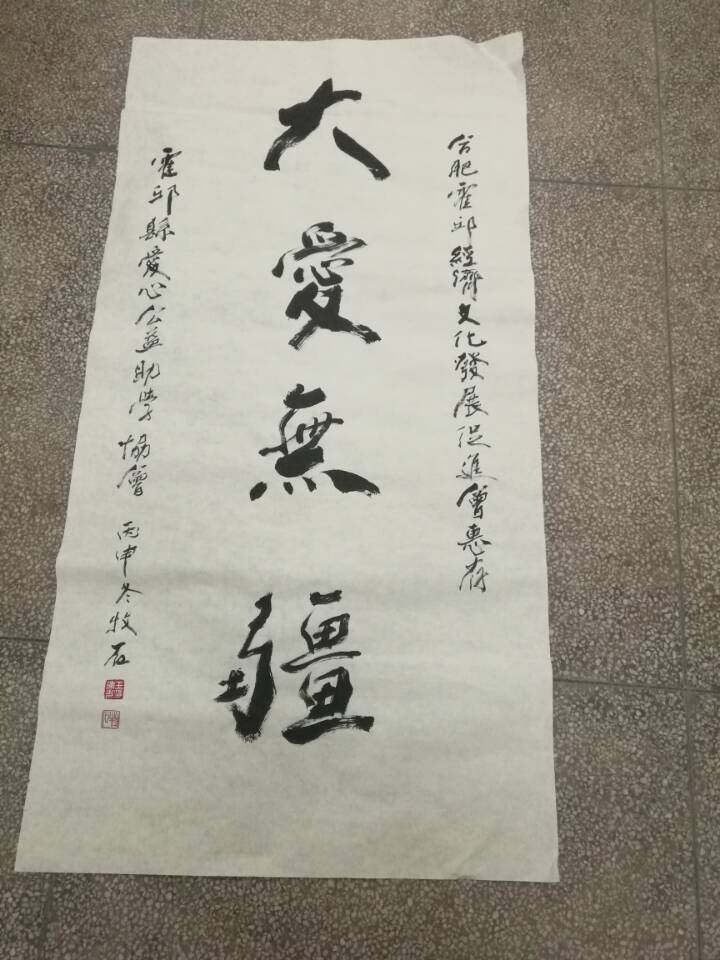 合肥霍邱經濟文化發展促進會惠存
大愛無疆
霍邱縣愛心公益助學協會 丙申冬牧石